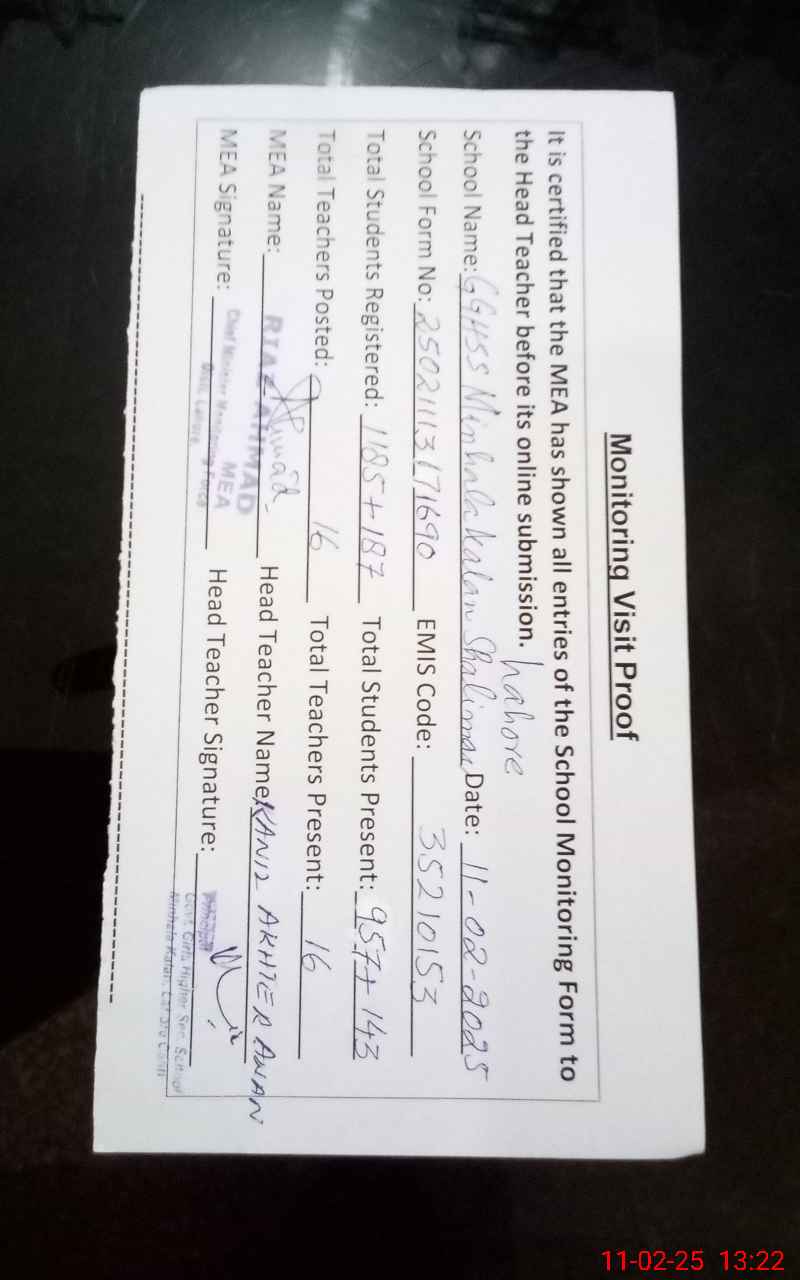 Monitoring Visit Proof
It is certified that the MEA has shown all entries of the School Monitoring Form to
the Head Teacher before its online submission. Lahore
School Name: GGHSS Minhala Kalan Shalimar Date: 11-02-2025
School Form No: 250211113171690 EMIS Code: 35210153
Total Students Registered: 1185+187 Total Students Present: 957+143
Total Teachers Posted: 16 Total Teachers Present: 16
MEA Name: RIAZ AHMAD Head Teacher Name: KANIZ AKHTER AWAN
MEA Signature: MEA Head Teacher Signature:
Chief Minister Monitoring Force
Distt. Lahore
Principal
Govt. Girls Higher Sec. School
Minhala Kalan, Lahore Cantt
11-02-25 13:22